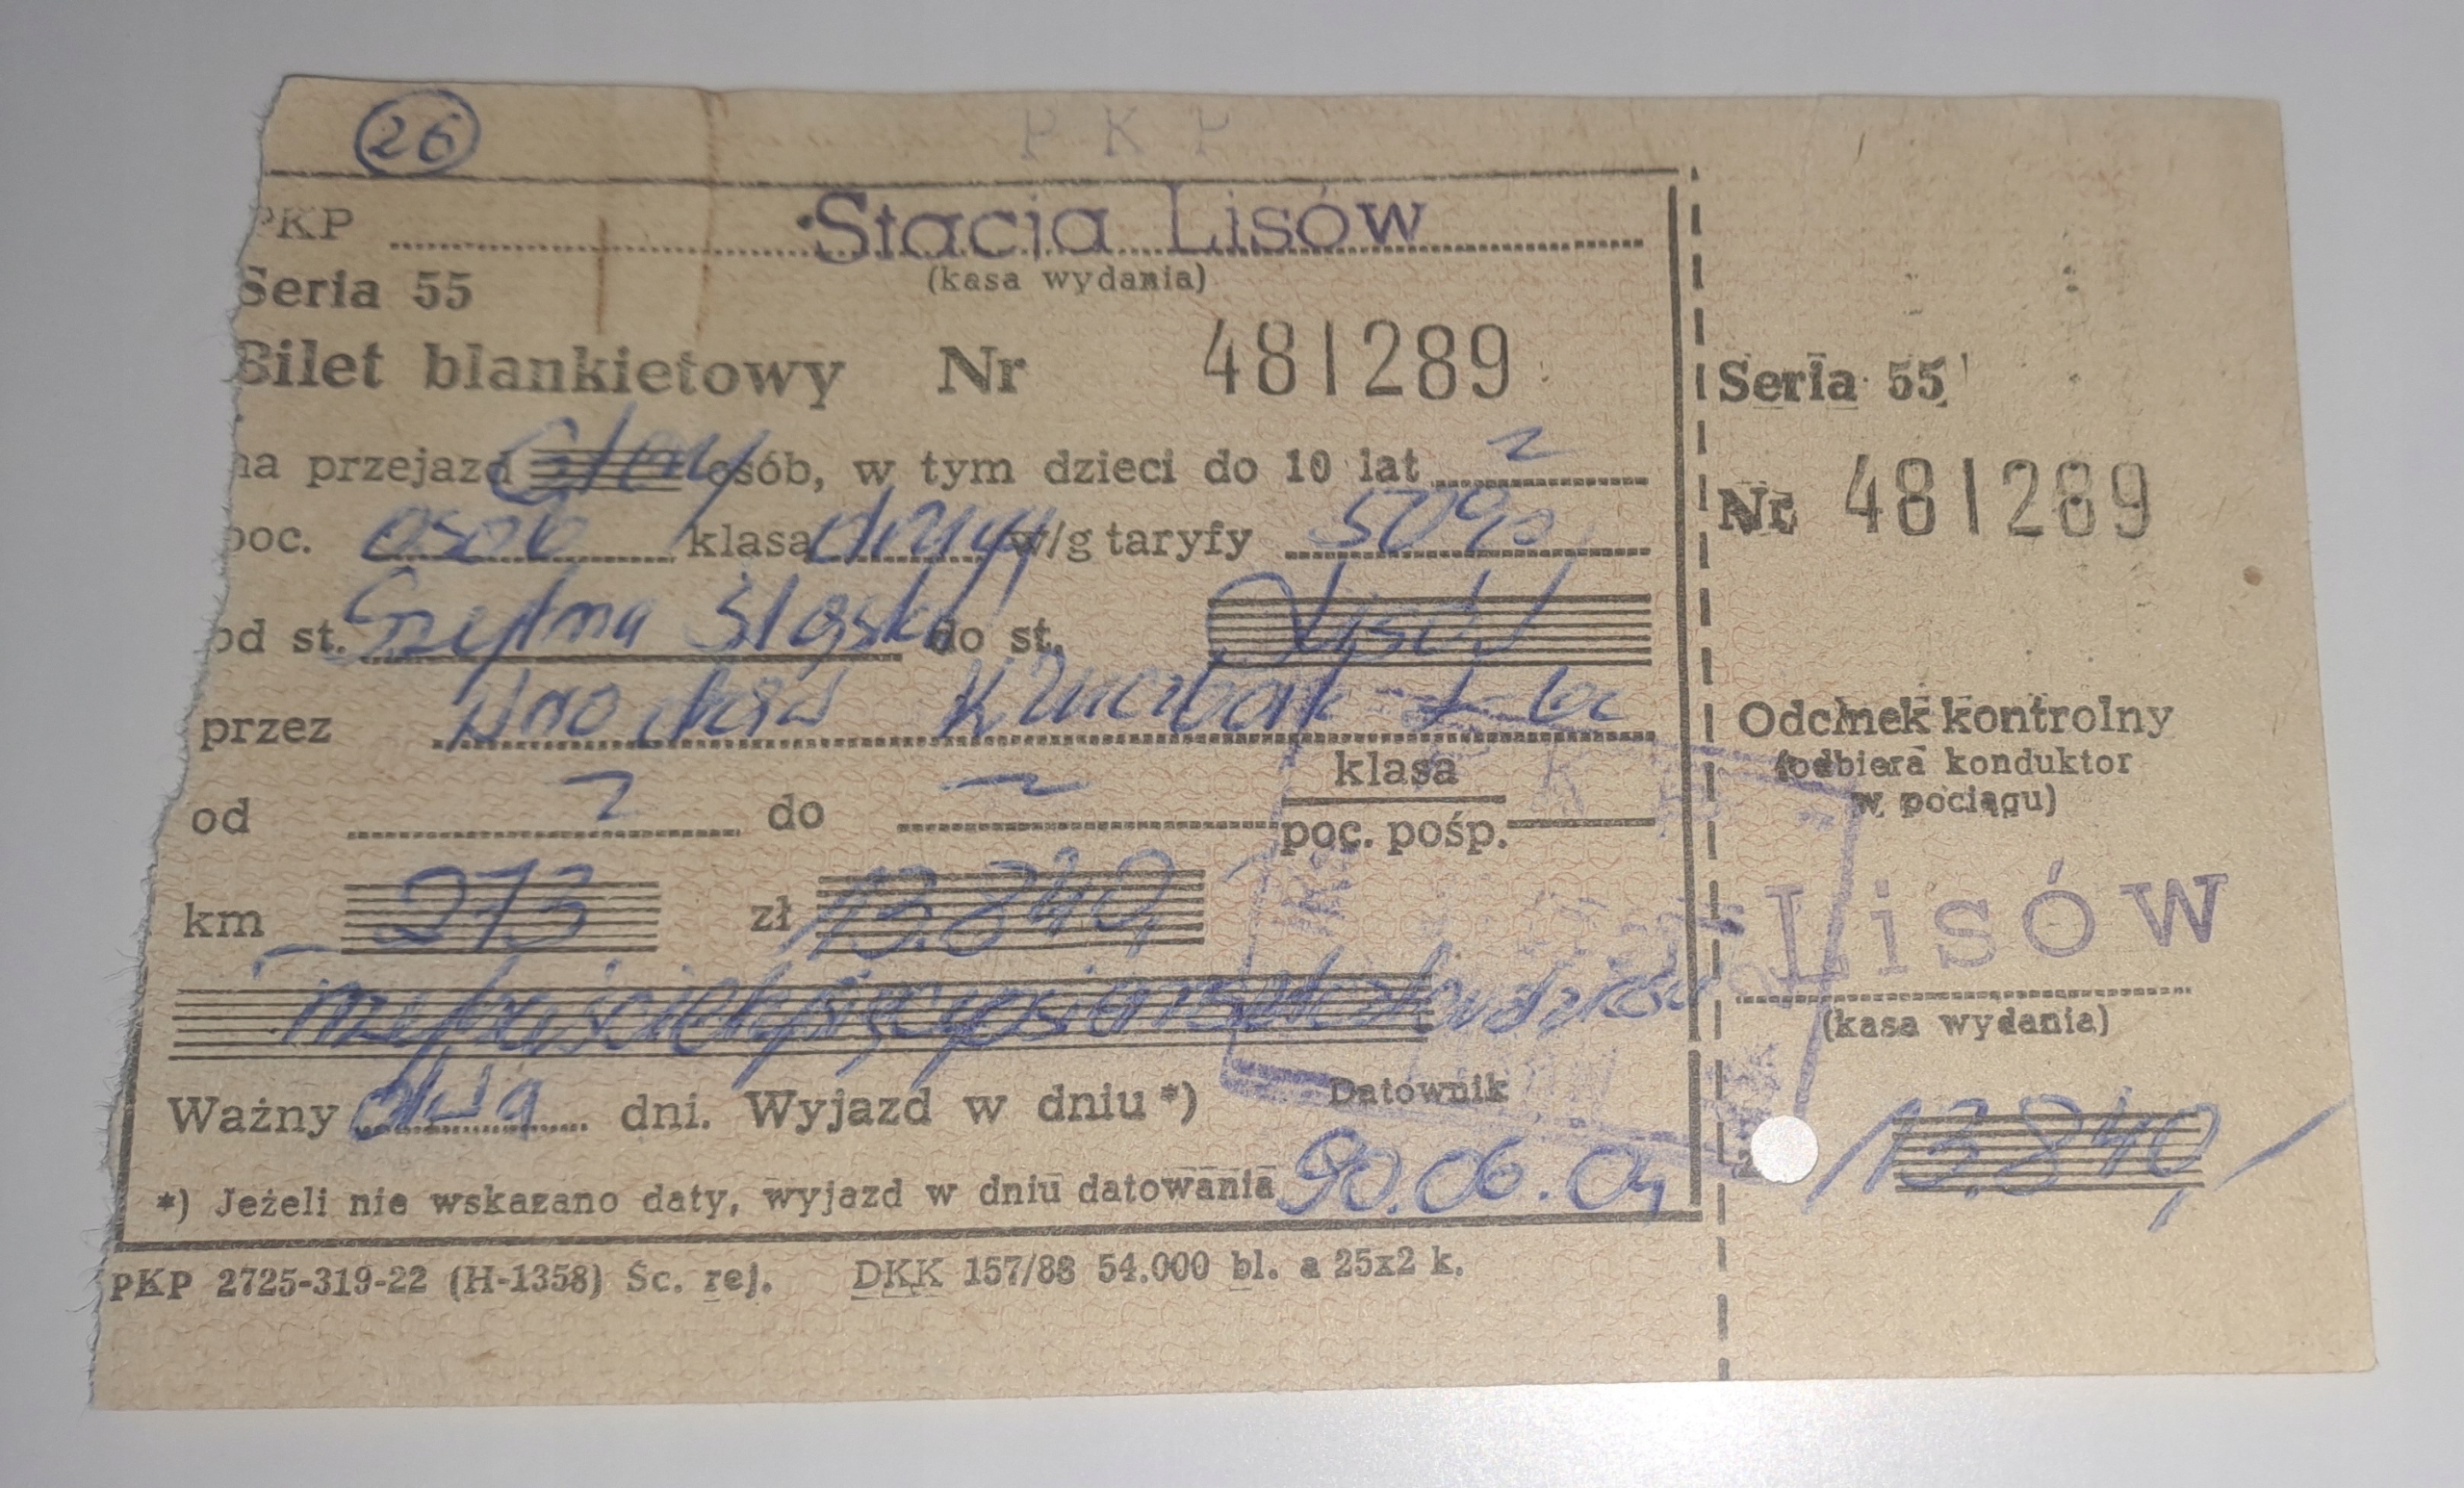 26
P K P
PKP Stacja Lisów
(kasa wydania)
Seria 55
Bilet blankietowy Nr 481289
na przejazd osób, w tym dzieci do 10 lat
poc. osob klasa drugą w/g taryfy 50%
od st. Śląska do st. Lisów
przez Wrocław Kluczbork L-ec
od do klasa
poc. pośp.
km 273 zł 13.840,
Ważny dwa dni. Wyjazd w dniu *)
Datownik
*) Jeżeli nie wskazano daty, wyjazd w dniu datowania 90.06.04
PKP 2725-319-22 (H-1358) Sc. rej. DKK 157/88 54.000 bl. a 25x2 k.
Seria 55
Nr 481289
Odcinek kontrolny
(odbiera konduktor
w pociągu)
Lisów
(kasa wydania)
13.840,